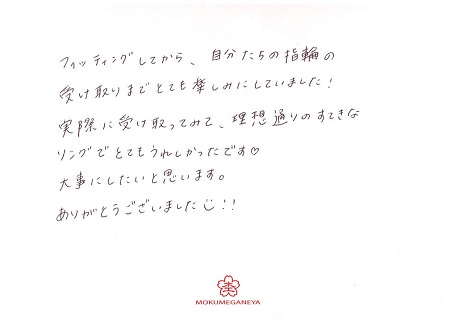 フィッティングしてから、自分たちの指輪の
受け取りまでとても楽しみにしていました!
実際に受け取ってみて、理想通りのすてきな
リングでとてもうれしかったです♡
大事にしたいと思います。
ありがとうございました☺!!
MOKUMEGANEYA